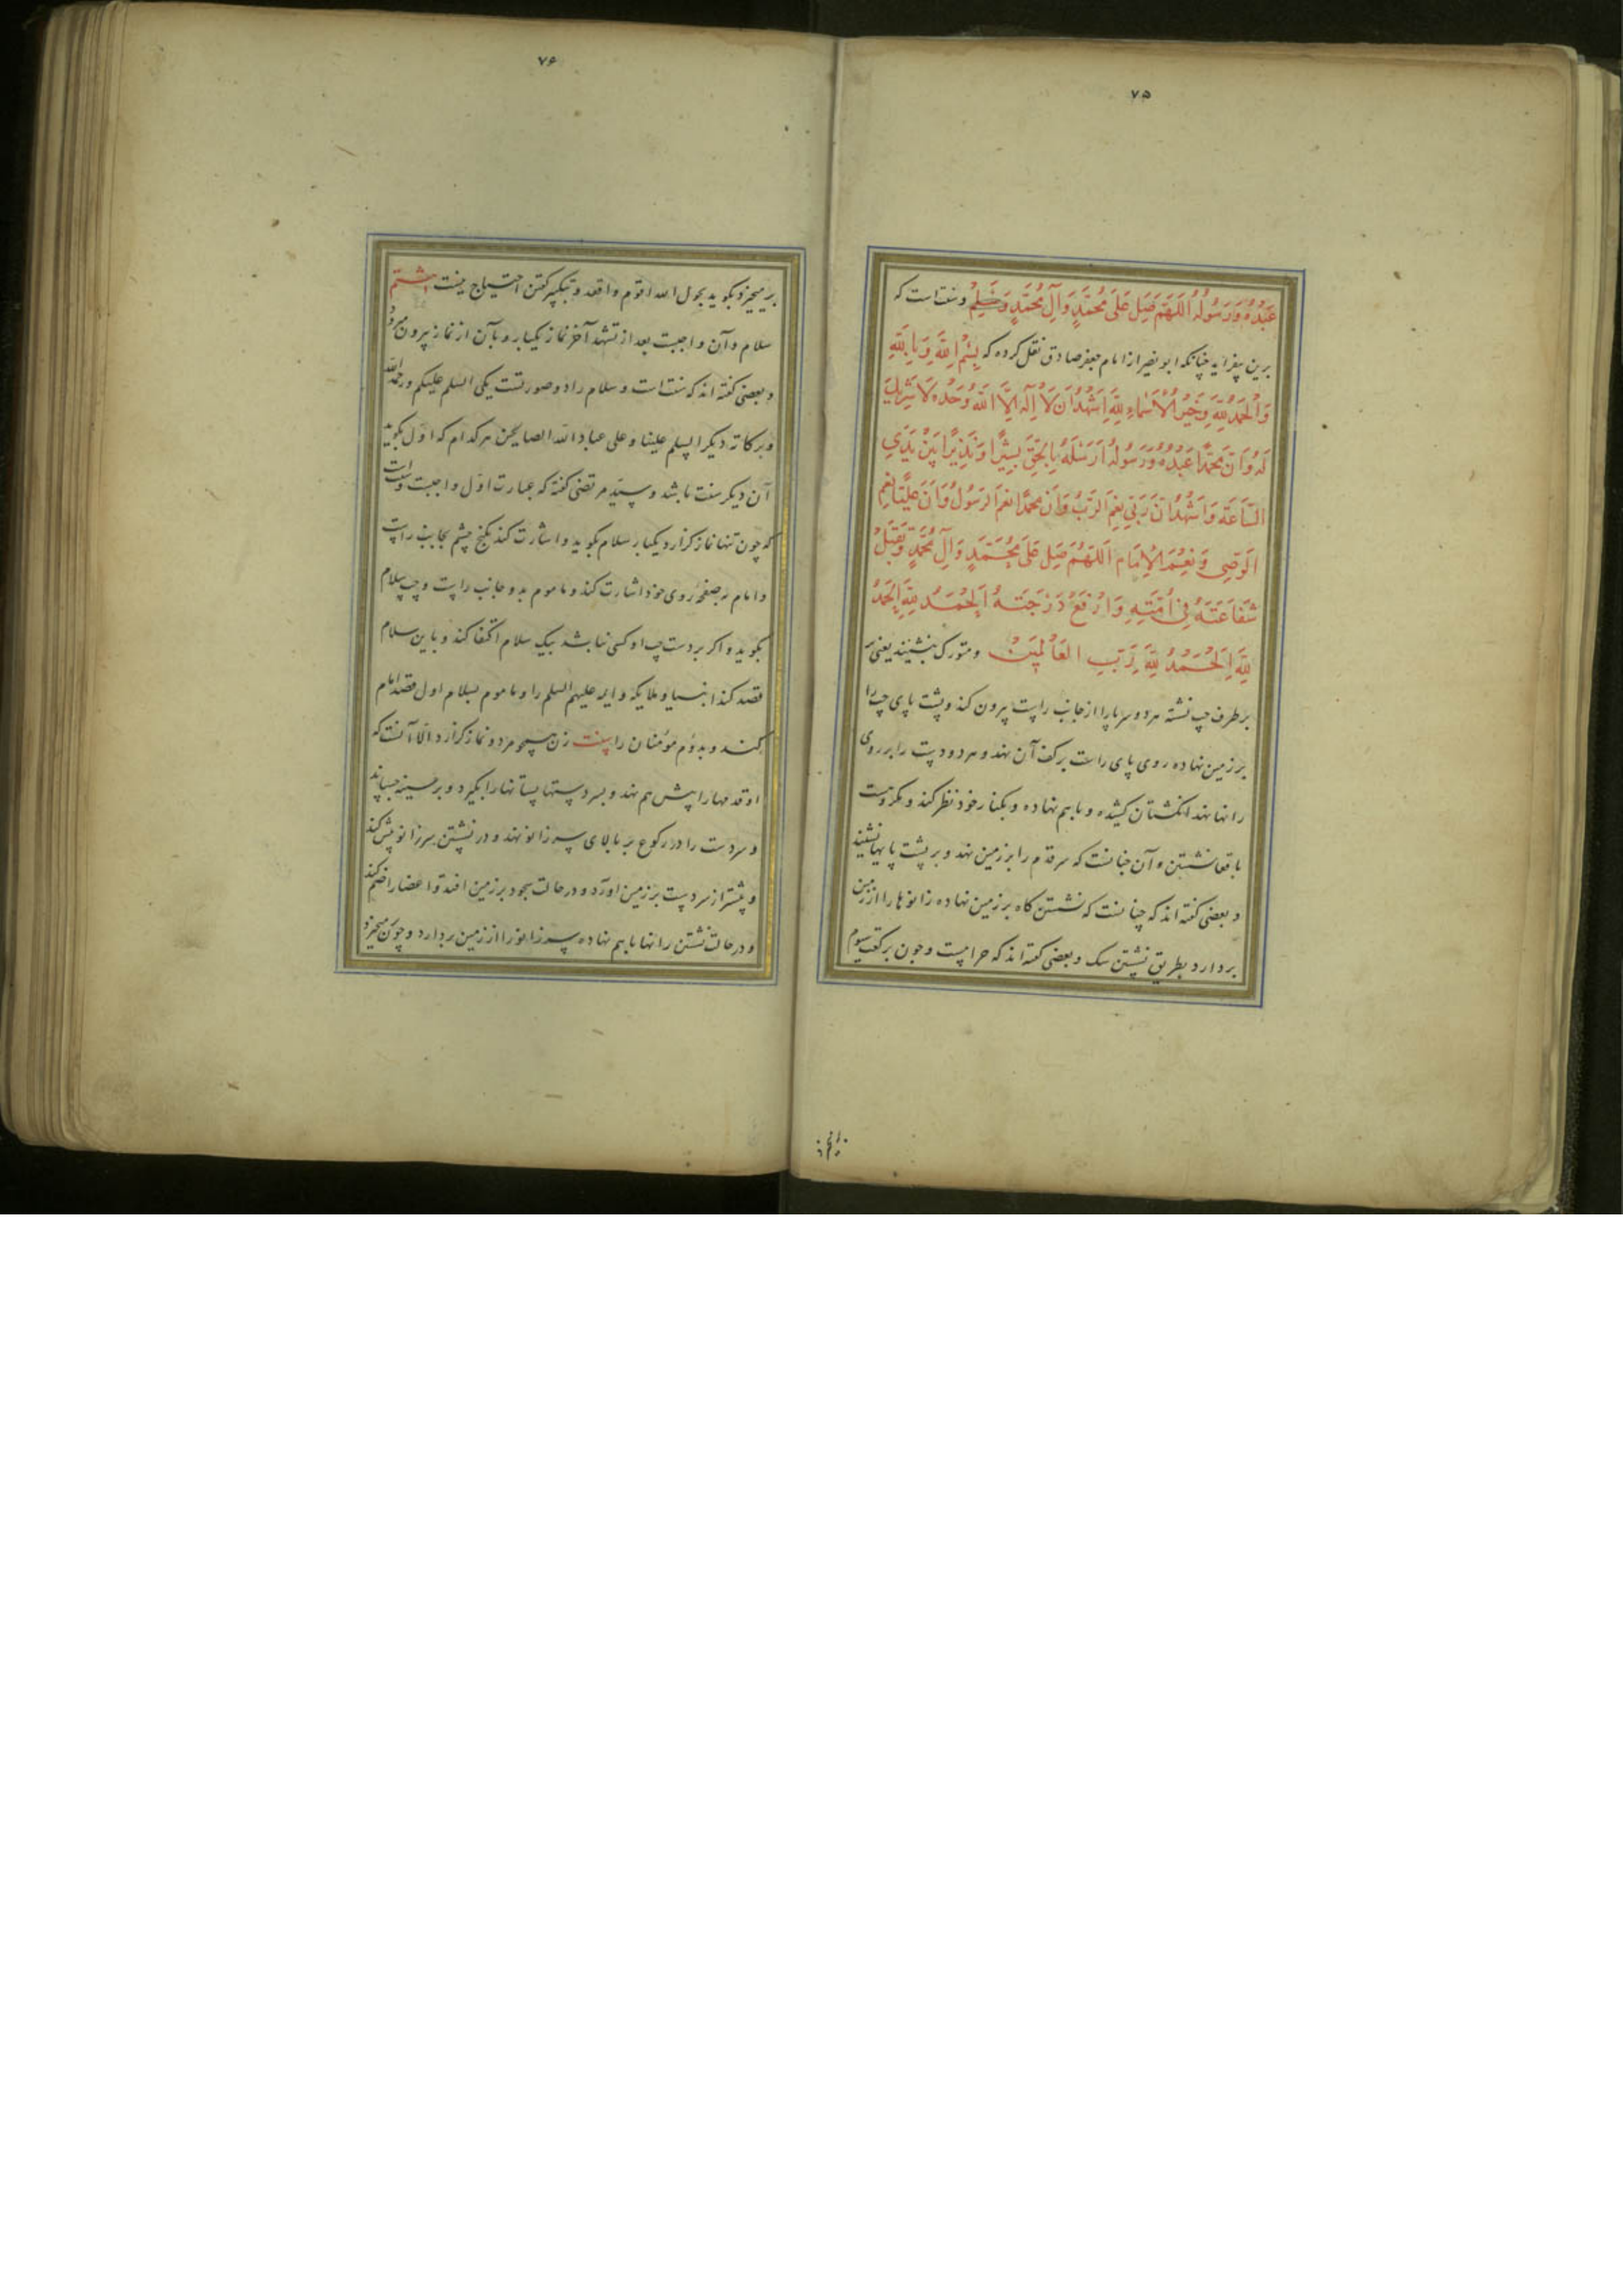 ۷۵
عَبْدُهُ وَرَسُولُهُ اَللّهُمَّ صَلِّ عَلَى مُحَمَّدٍ وَآلِ مُحَمَّدٍ وَسَلِّمْ وسنت است که
برین بیفزاید چنانکه ابو بصیر از امام جعفر صادق نقل کرده که بِسْمِ اللَّهِ وَبِاللَّهِ
وَالْحَمْدُ لِلَّهِ وَخَيْرُ الْأَسْمَاءِ لِلَّهِ اَشْهَدُ اَنْ لَا اِلَهَ اِلَّا اللَّهُ وَحْدَهُ لَا شَرِيكَ
لَهُ وَاَنَّ مُحَمَّدًا عَبْدُهُ وَرَسُولُهُ اَرْسَلَهُ بِالْحَقِّ بَشِيرًا وَنَذِيرًا بَيْنَ يَدَيِ
السَّاعَةِ وَاَشْهَدُ اَنَّ رَبِّي نِعْمَ الرَّبُّ وَاَنَّ مُحَمَّدًا نِعْمَ الرَسُولُ وَاَنَّ عَلِيًّا نِعْمَ
الْوَصِي وَنِعْمَ الْاِمَام اَللّهُمَّ صَلِّ عَلَى مُحَمَّدٍ وَآلِ مُحَمَّدٍ وَتَقَبَّلْ
شَفَاعَتَهُ فِي اُمَّتِهِ وَارْفَعْ دَرَجَتَهُ اَلْحَمْدُ لِلَّهِ اَلْحَمْدُ
لِلَّهِ اَلْحَمْدُ لِلَّهِ رَبِّ الْعَالَمِينَ و متورک بنشیند یعنی
بر طرف چپ نشسته هر دو سر پا را از جانب راست بیرون کند و پشت پای چپ را
بر زمین نهاده روی پای راست بر کف آن نهد و هر دو دست را بر روی
رانها نهد انکشتان کشیده و با هم نهاده و بکنار خود نظر کند و مکروهست
باقعا نشستن و آن چنانست که سر قدم را بر زمین نهد و بر پشت پایها نشیند
و بعضی کفته اند که چنانست که نشستن کاه بر زمین نهاده زانوها را از زمین
بردارد بطریق نشستن سک و بعضی کفته اند که حرامست و چون برکعت سیوم
۷۶
برمیخیزد بکوید بحول الله اقوم واقعد و بتکبیر کفتن احتیاج نیست هشتم
سلام و آن واجبست بعد از تشهد آخر نماز یکبار و بآن از نماز بیرون میرود
و بعضی کفته اند که سنت است و سلام را دو صورتست یکی السلم علیکم ورحمة الله
وبرکاته دیکر السلم علینا وعلی عباد الله الصالحین هر کدام که اول بکوید
آن دیکر سنت باشد و سید مرتضی کفته که عبارت اول واجبست وسنت است
که چون تنها نماز کزارد یکبار سلام بکوید و اشارت کند بکنج چشم بجانب راست
و امام بصفحهٔ روی خود اشارت کند و ماموم بدو جانب راست و چپ سلام
بکوید و اکر بر دست چپ او کسی نباشد بیک سلام اکتفا کند و باین سلام
قصد کند انبیا و ملایکه و ایمه علیهم السلم را و ماموم بسلام اول قصد امام
کند و بدوم مومنان را سنت زن همچو مرد و نماز کزارد الا آنست که
او قدمها را پیش هم نهد و بسر دستها پستانها را بگیرد و بر سینه چسپاند
و سر دست را در رکوع بر بالای سر زانو نهد و در نشستن سر زانو پیش کند
و پیشتر از سر دست بر زمین اورد و در حالت سجود بر زمین افتد و اعضا را ضم کند
و در حالت نشستن رانها با هم نهاده سر زانو را از زمین بردارد و چون میخیزد